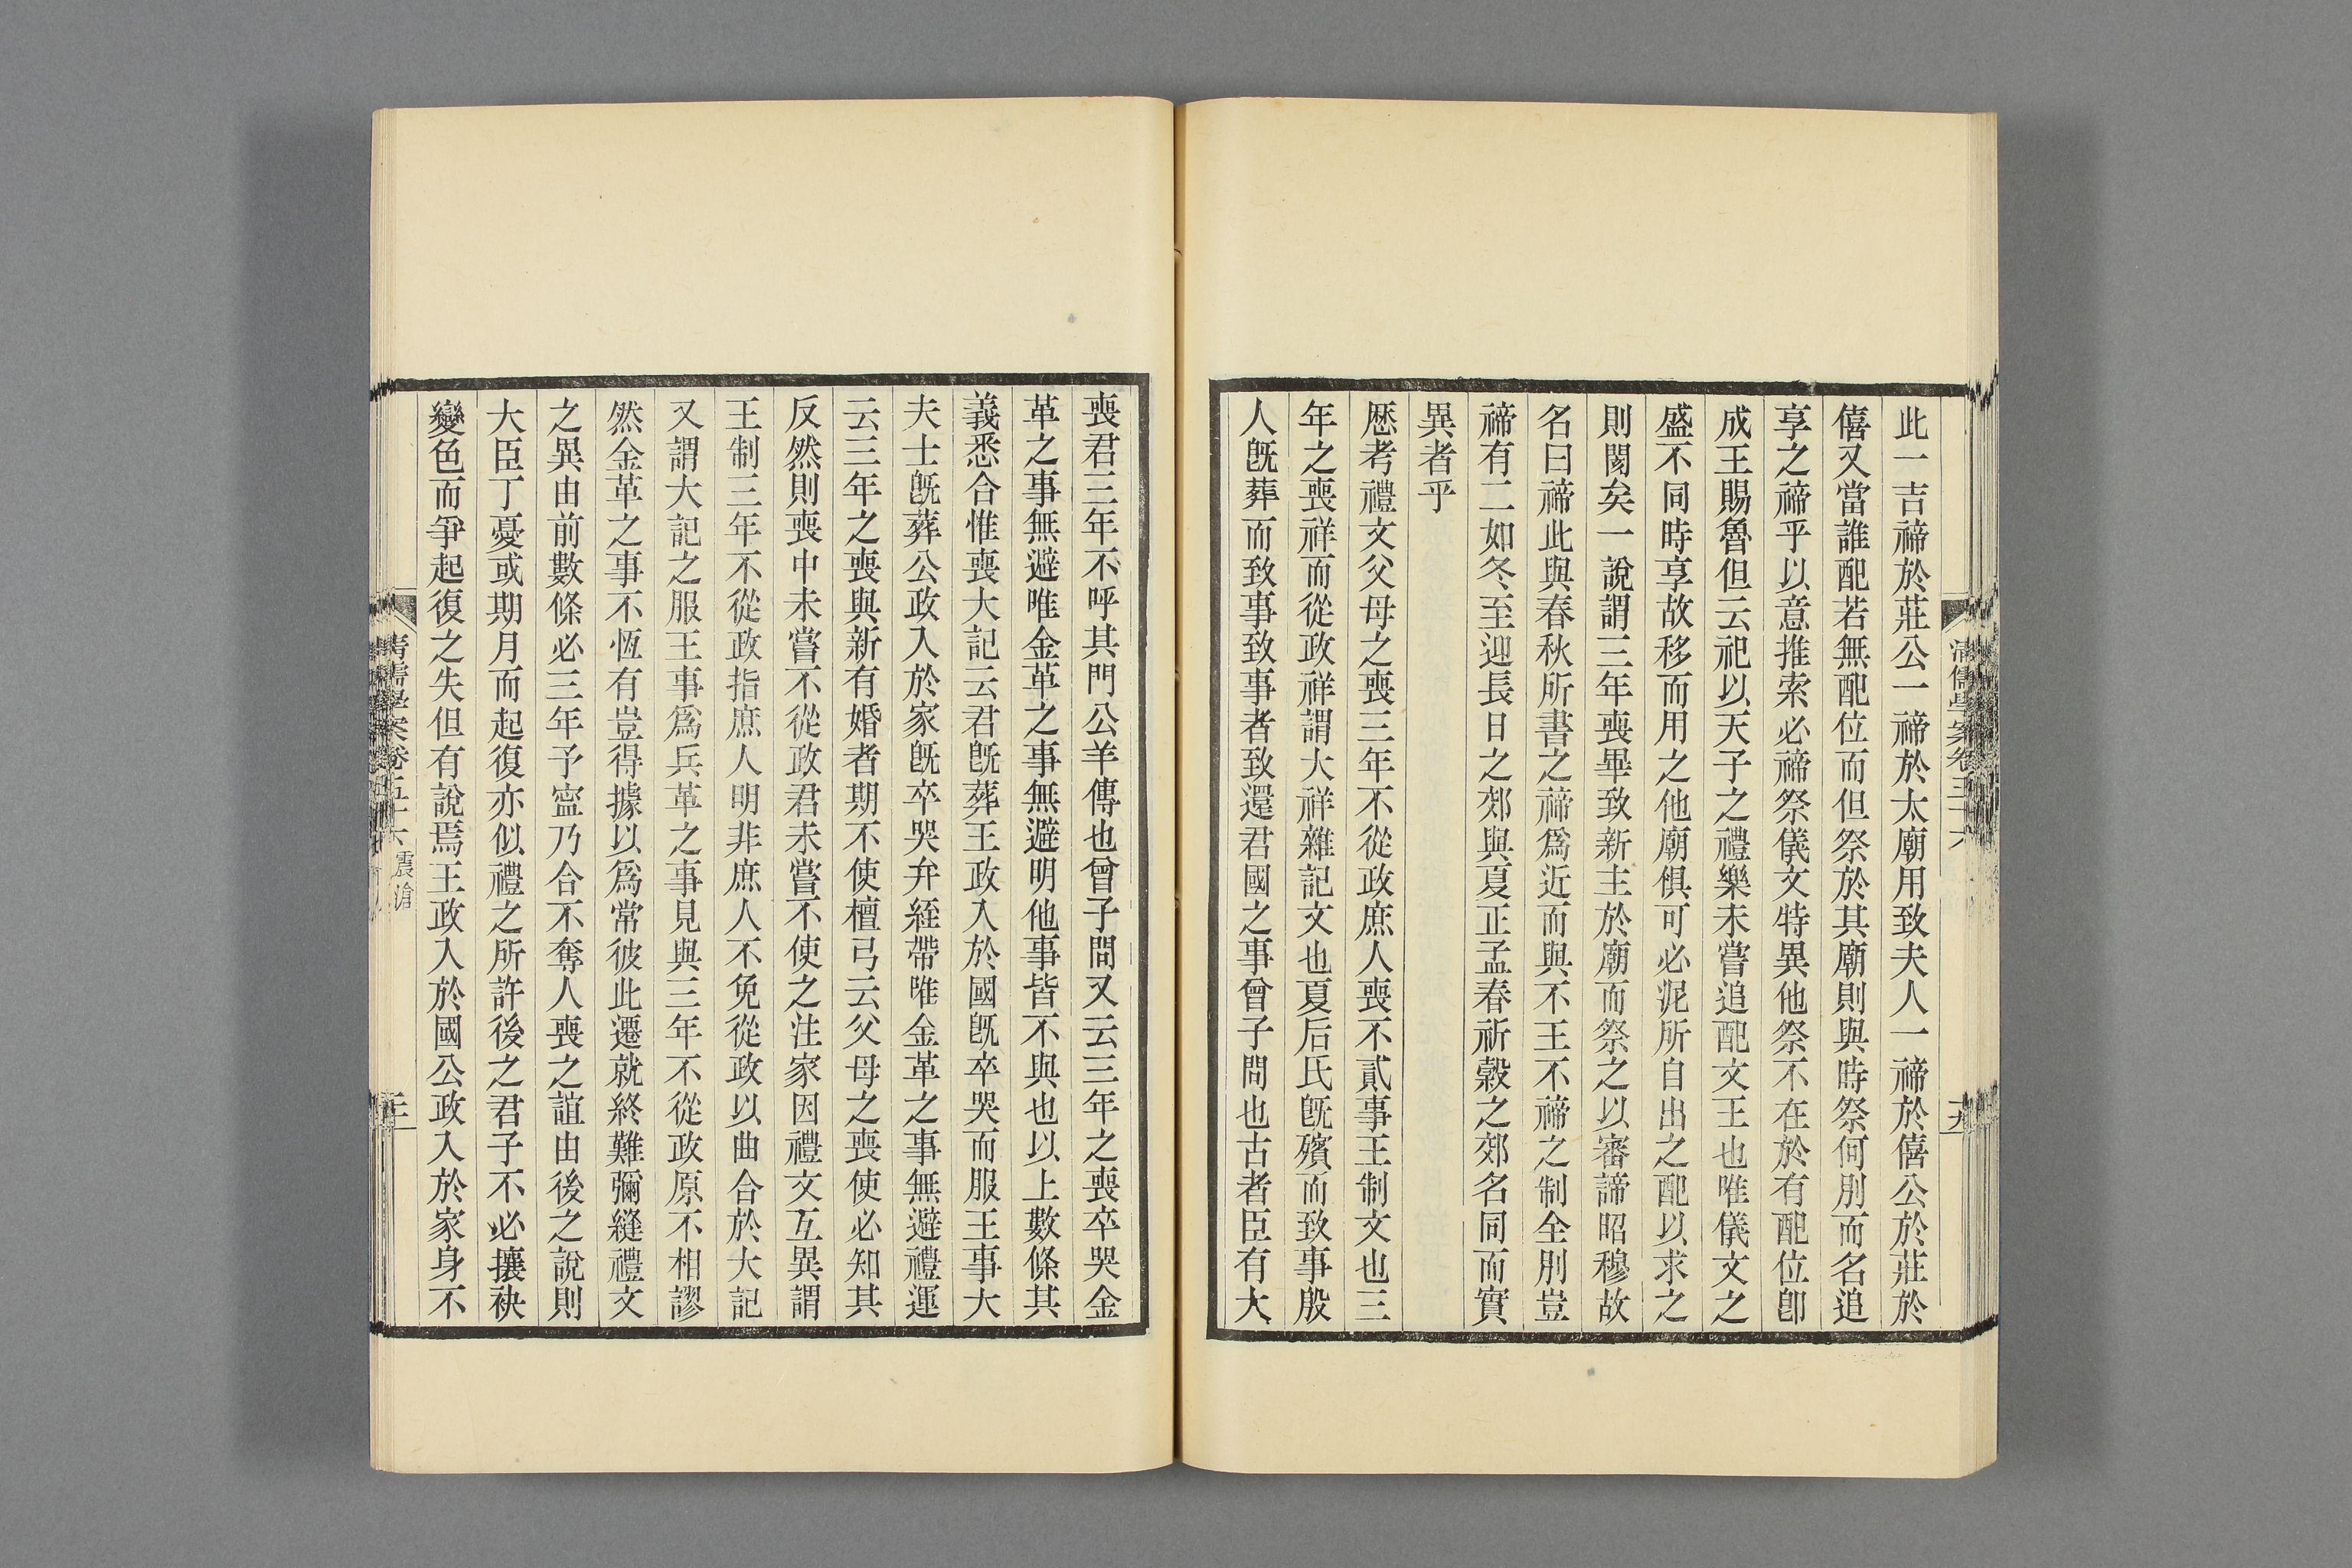 此一吉禘於莊公一禘於太廟用致夫人一禘於僖公於莊於
僖又當誰配若無配位而但祭於其廟則與時祭何別而名追
享之禘乎以意推索必禘祭儀文特異他祭不在於有配位卽
成王賜魯但云祀以天子之禮樂未嘗追配文王也唯儀文之
盛不同時享故移而用之他廟俱可必泥所自出之配以求之
則閡矣一說謂三年喪畢致新主於廟而祭之以審諦昭穆故
名曰禘此與春秋所書之禘爲近而與不王不禘之制全別豈
禘有二如冬至迎長日之郊與夏正孟春祈穀之郊名同而實
異者乎
厯考禮文父母之喪三年不從政庶人喪不貳事王制文也三
年之喪祥而從政祥謂大祥雜記文也夏后氏旣殯而致事殷
人旣葬而致事致事者致還君國之事曾子問也古者臣有大
喪君三年不呼其門公羊傳也曾子問又云三年之喪卒哭金
革之事無避唯金革之事無避明他事皆不與也以上數條其
義悉合惟喪大記云君旣葬王政入於國旣卒哭而服王事大
夫士旣葬公政入於家旣卒哭弁絰帶唯金革之事無避禮運
云三年之喪與新有婚者期不使檀弓云父母之喪使必知其
反然則喪中未嘗不從政君未嘗不使之注家因禮文互異謂
王制三年不從政指庶人明非庶人不免從政以曲合於大記
又謂大記之服王事爲兵革之事見與三年不從政原不相謬
然金革之事不恆有豈得據以爲常彼此遷就終難彌縫禮文
之異由前數條必三年予寍乃合不奪人喪之誼由後之說則
大臣丁憂或期月而起復亦似禮之所許後之君子不必攘袂
變色而爭起復之失但有說焉王政入於國公政入於家身不
清儒學案卷五十六 震滄